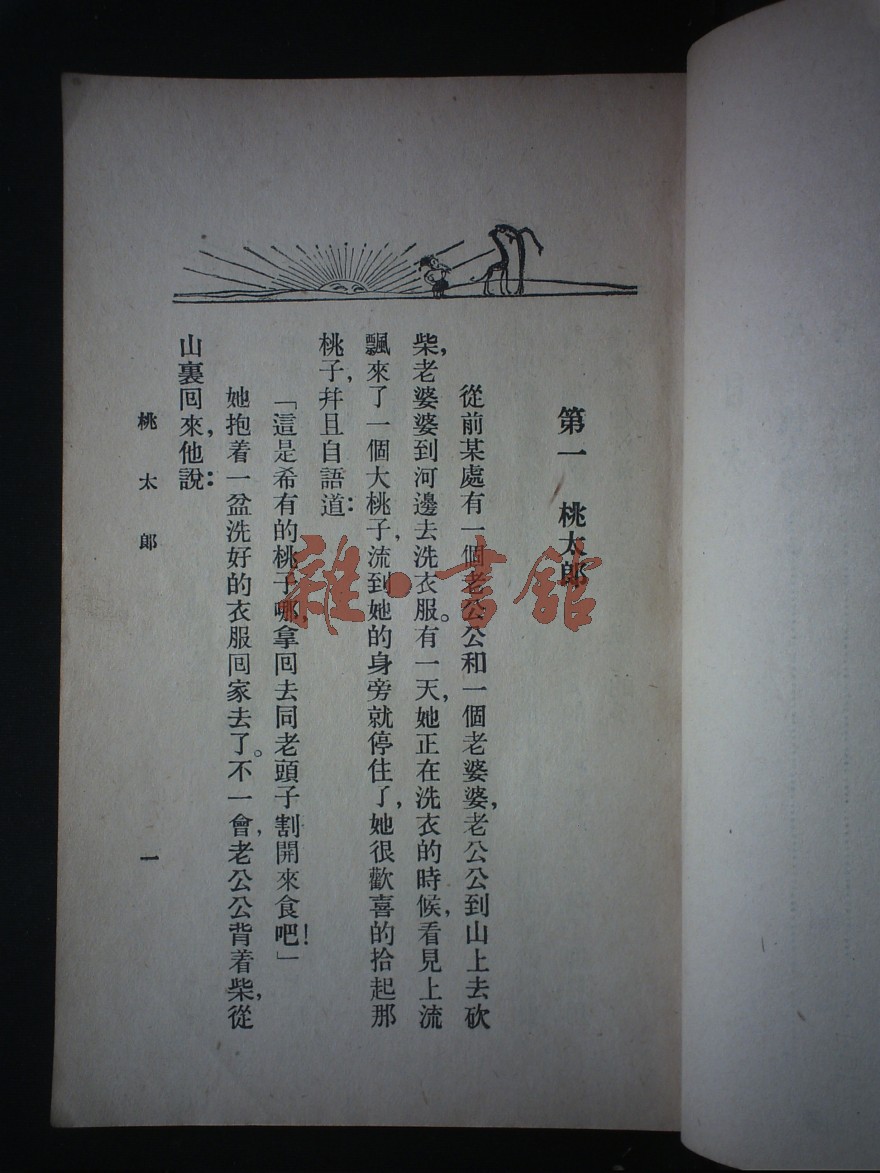 第一　桃太郎
從前某處有一個老公公和一個老婆婆，老公公到山上去砍
柴，老婆婆到河邊去洗衣服。有一天，她正在洗衣的時候，看見上流
飄來了一個大桃子，流到她的身旁就停住了，她很歡喜的拾起那
桃子，幷且自語道：
「這是希有的桃子哪，拿回去同老頭子割開來食吧！」
她抱着一盆洗好的衣服回家去了。不一會，老公公背着柴，從
山裏回來，他說：
桃太郎
一
雜·書館